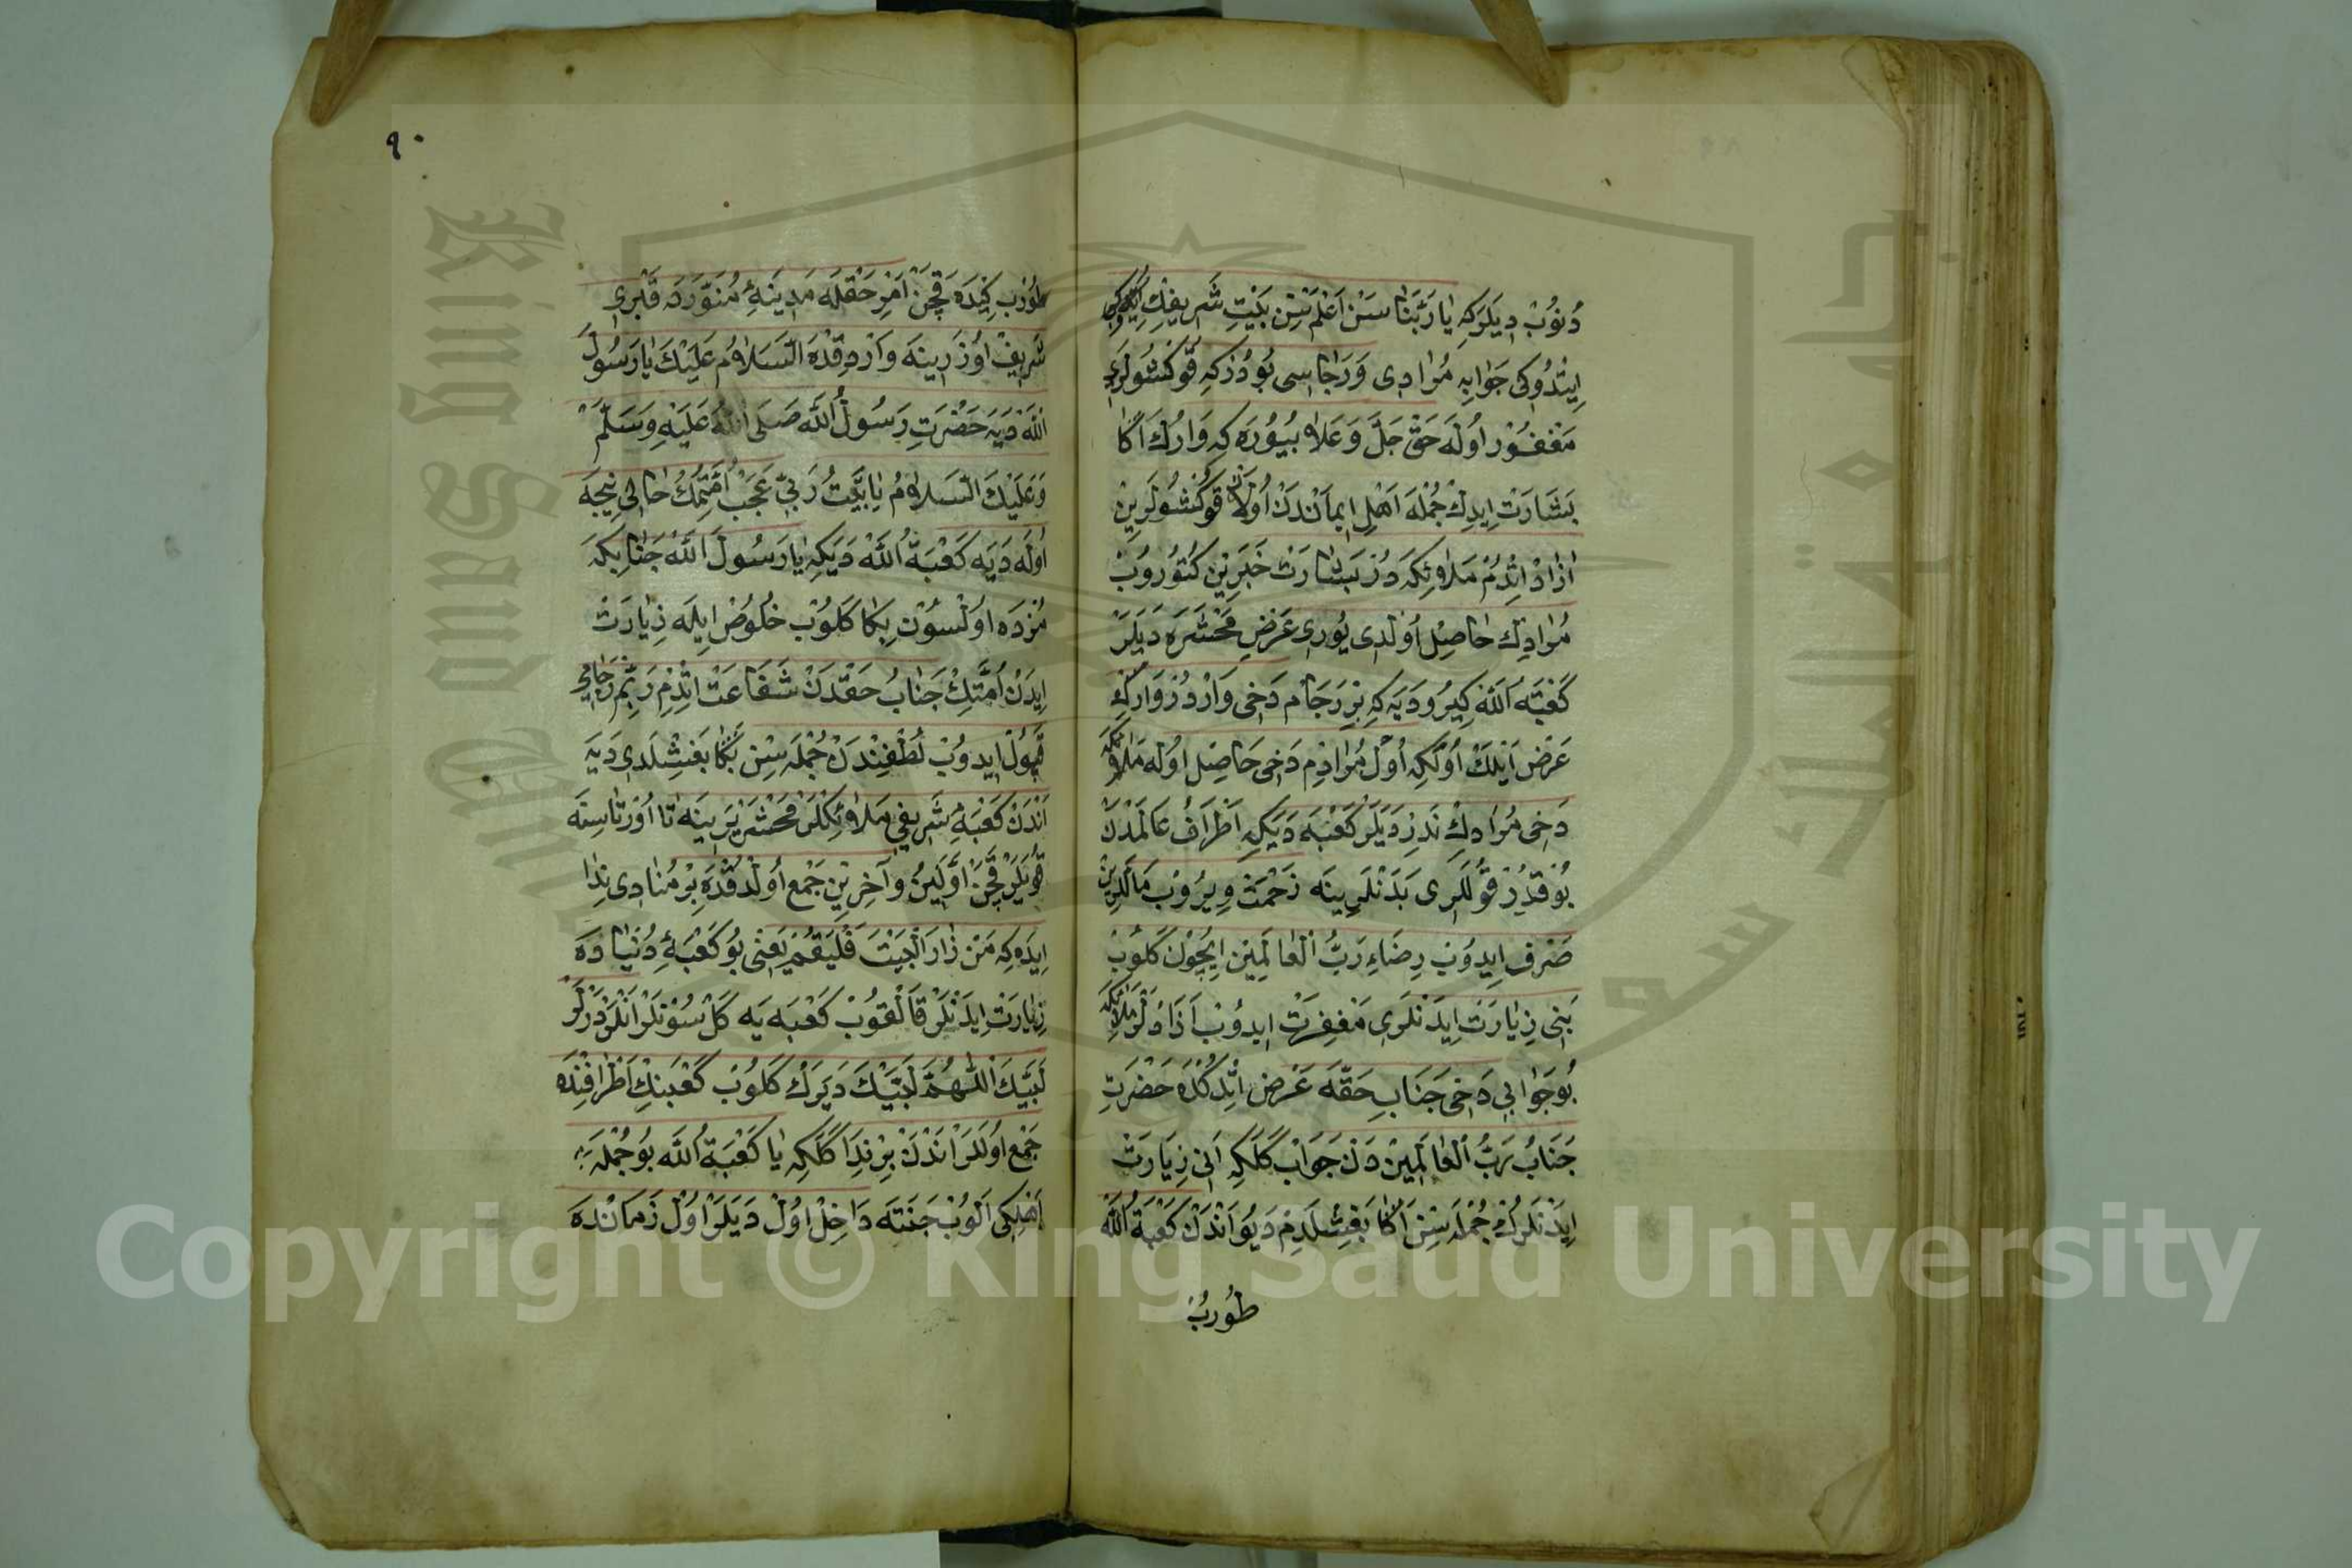 دُونُوبْ دِيَلَرَكِه يَا رَبَّنَا سَنْ اَعْلَمْسِنْ بَيْتِ شَرِيفِكْ
اِيتْدُوكِى جَوَابِه مُرَادِى وَرَجَاسِى بُودُرْكِه قُوكْشُولَرِى
مَغْفُورْ اُولَه حَقْ جَلَّ وَعَلَا بُيُورَه كِه وَارُكْ اَكَا
بَشَارَتْ اِيدِكْ جُمْلَه اَهْلِ اِيمَانْدَنْ اُولَانْ قُوكْشُولَرِينْ
اَزَادْ اِتْدُمْ مَلَائِكَه دُرْ بَشَارَتْ خَبَرِينْ كُتُورُوبْ
مُرَادِكْ حَاصِلْ اُولْدِى يُورِى عَرَضِ مَحْشَرَه دَيَلَرْ
كَعْبَةُ اللّٰه كِيرُو دَيَه كِه بِرْ رَجَامْ دَخِى وَارْدُرْ وَارُكْ
عَرْضْ اَيْلَكْ اُولَكِه اُولْ مُرَادِمْ دَخِى حَاصِلْ اُولَه مَلَائِكَه
دَخِى مُرَادِكْ نَدِرْ دَيَلَرْ كَعْبَه دَيَكِه اَطْرَافُ عَالَمْدَنْ
بُو قَدَرْ قُولَلَرِى بَدَنْلَرِينَه زَحْمَتْ وِيرُوبْ مَالْلَرِينْ
صَرْف اِيدُوبْ رِضَاءِ رَبُّ الْعَالَمِينْ اِيچُونْ كَلُوبْ
بَنِى زِيَارَتْ اِيدَنْلَرِى مَغْفِرَتْ اِيدُوبْ اَزَادْلَرْ مَلَائِكَه
بُو جَوَابِى دَخِى جَنَابِ حَقَّه عَرْض اِتْدُكْدَه حَضْرَتِ
جَنَابُ رَبُّ الْعَالَمِينْ دَنْ جَوَابْ كَلَكِه اَنِى زِيَارَتْ
اِيدَنْلَرُكْ جُمْلَه سِنْ اَكَا بَغِشْلَدِمْ دَيُو اَنْدَنْ كَعْبَةُ اللّٰه
طُورُبْ
٩٠
طُورُبْ كِيْدَه قَچَنْ اَمْرِ حَقْلَه مَدِينَهٔ مُنَوَّرَه دَه قَبْرِى
شَرِيفْ اُوزَرِينَه وَارْدِقْدَه السَّلَامُ عَلَيْكَ يَا رَسُولَ
اللّٰه دَيَه حَضْرَتِ رَسُولُ اللّٰه صَلَى اللّٰهُ عَلَيْهِ وَسَلَّمْ
وَعَلَيْكَ السَّلَامُ يَا بَيْتُ رَبِّى عَجَبْ اُمَّتِمُكْ حَالِى نِيجَه
اُولَه دَيَه كَعْبَةُ اللّٰه دَيَكِه يَا رَسُولَ اللّٰه جَنَابِكَه
مُزْدَه اُولْسُونْ بِكَا كَلُوبْ خُلُوصْ اِيلَه زِيَارَتْ
اِيدَنْ اُمَّتِكْ جَنَابُ حَقْدَنْ شَفَاعَتْ اِتْدِمْ رَبِّمْ رَجَامِى
قَبُولْ اِيدُوبْ لُطْفِنْدَنْ جُمْلَه سِنْ بَكَا بَغِشْلَدِى دَيَه
اَنْدَنْ كَعْبَهٔ شَرِيفِى مَلَائِكَلَرْ مَحْشَرْ يَرِينَه تَا اُورْتَاسِنَه
قُويَلَرْ قَچَنْ اَوَّلِينُ وَآخِرِينْ جَمْع اُولْدُقْدَه بِرْ مُنَادِى نِدَا
اِيدَه كِه مَنْ زَارَ الْبَيْتَ فَلْيَقُمْ يَعْنِى بُو كَعْبَهٔ دُنْيَا دَه
زِيَارَتْ اِيدَنْلَرْ قَالْقُوبْ كَعْبَه يَه كَلْسُونْلَرْ اَنْلَرْ دَرْلَرْ
لَبَّيْكَ اَللّٰهُمَّ لَبَّيْكَ دَيَرَكْ كَلُوبْ كَعْبَنِكْ اَطْرَافِنْدَه
جَمْع اُولَلَرْ اَنْدَنْ بِرْ نِدَا كَلَكِه يَا كَعْبَةُ اللّٰه بُو جُمْلَه
اَهْلِكِى اَلُوبْ جَنَّتَه دَاخِلْ اُولْ دَيَلَرْ اُولْ زَمَانْدَه
Copyright © King Saud University